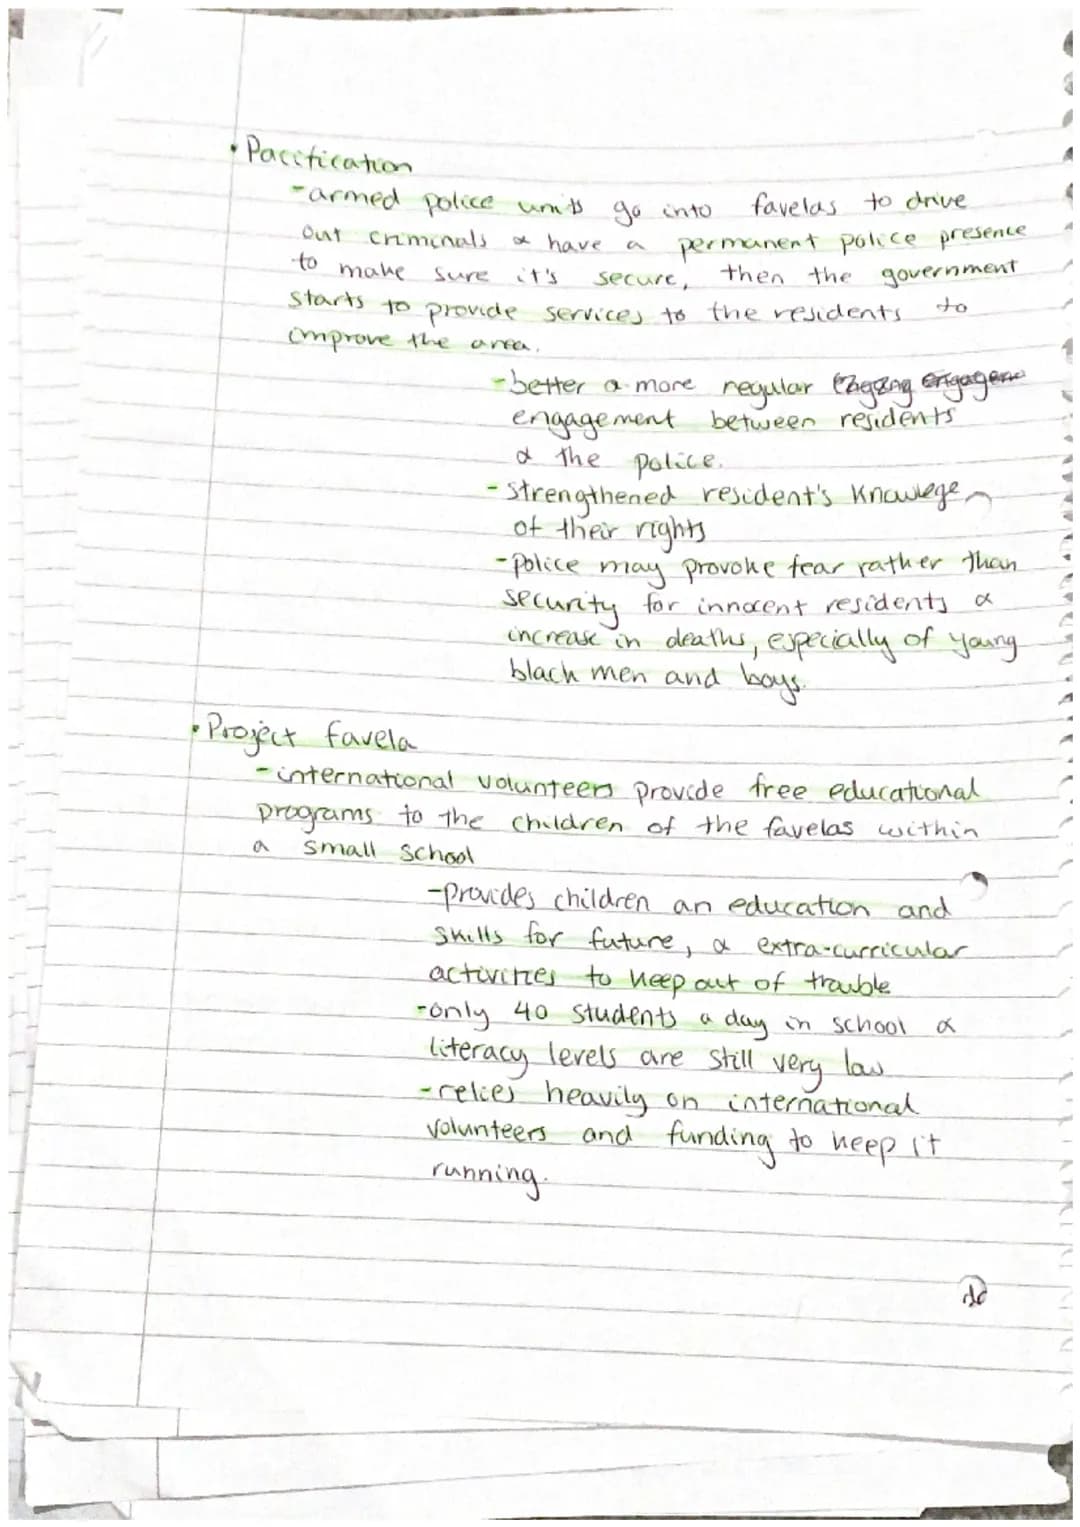 • Pacification
- armed police units go into favelas to drive
out criminals & have a permanent police presence
to make sure it's secure, then the government
starts to provide services to the residents to
improve the area.
- better & more regular engagem
engagement between residents
& the police.
- strengthened resident's knowlege
of their rights
- Police may provoke fear rather than
security for innocent residents &
increase in deaths, especially of young
black men and boys.
• Project favela
- international volunteers provide free educational
programs to the children of the favelas within
a small school
- provides children an education and
skills for future, & extra-curricular
activities to keep out of trouble
- only 40 students a day in school &
literacy levels are still very low
- relies heavily on international
volunteers and funding to keep it
running.